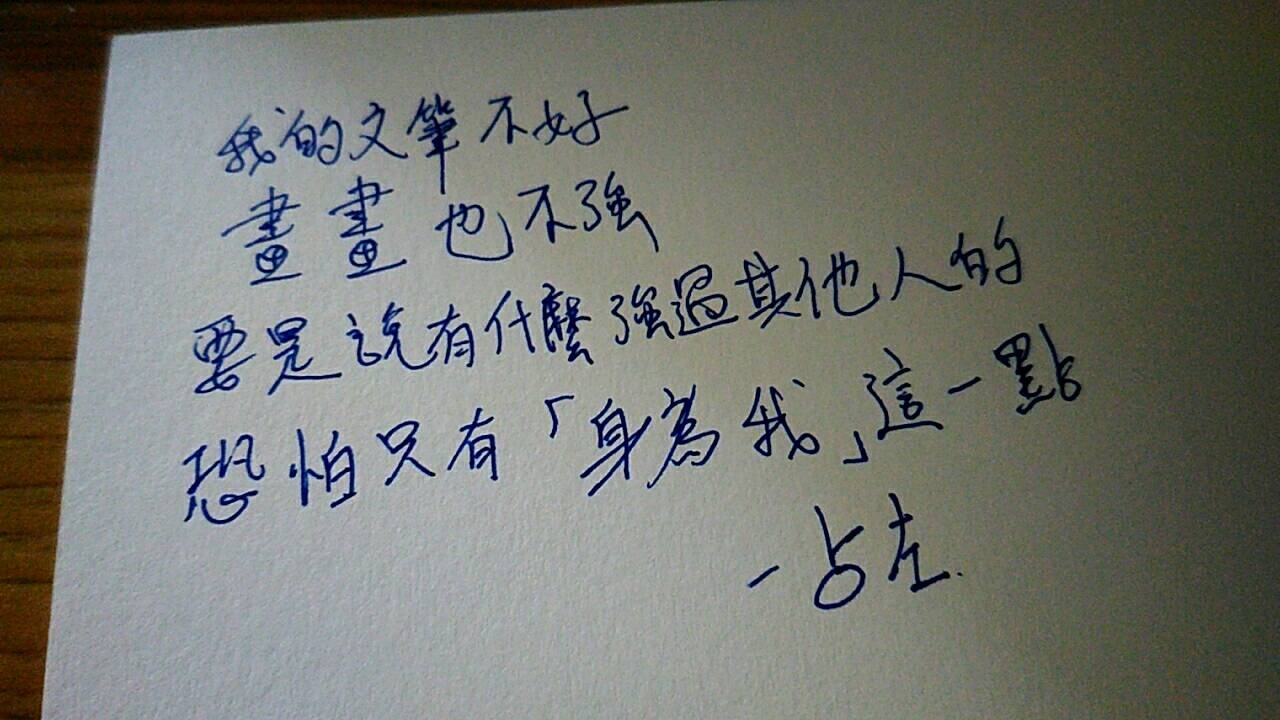 我的文筆不好
畫畫也不強
要是說有什麼強過其他人的
恐怕只有「身為我」這一點
—占左.